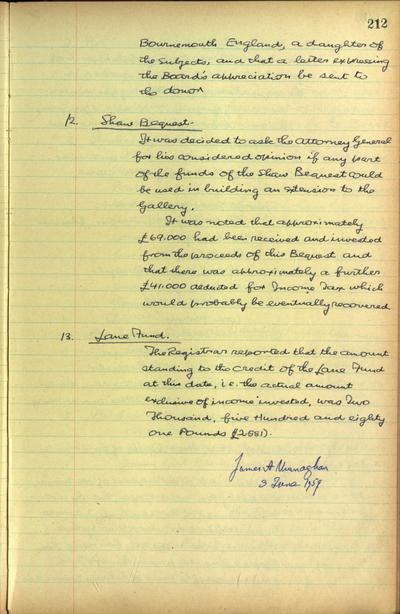 212
Bournemouth England, a daughter of
the subjects, and that a letter expressing
the Board's appreciation be sent to
the donor
12. Shaw Bequest.
It was decided to ask the Attorney General
for his considered opinion if any part
of the funds of the Shaw Bequest could
be used in building an extension to the
Gallery.
It was noted that approximately
£69,000 had been received and invested
from the proceeds of this Bequest and
that there was approximately a further
£41,000 deducted for Income Tax which
would probably be eventually recovered
13. Lane Fund.
The Registrar reported that the amount
standing to the credit of the Lane Fund
at this date, i.e. the actual amount
exclusive of income invested, was Two
Thousand, five Hundred and eighty
one Pounds (£2581).
James A Murnaghan
3 June 1959